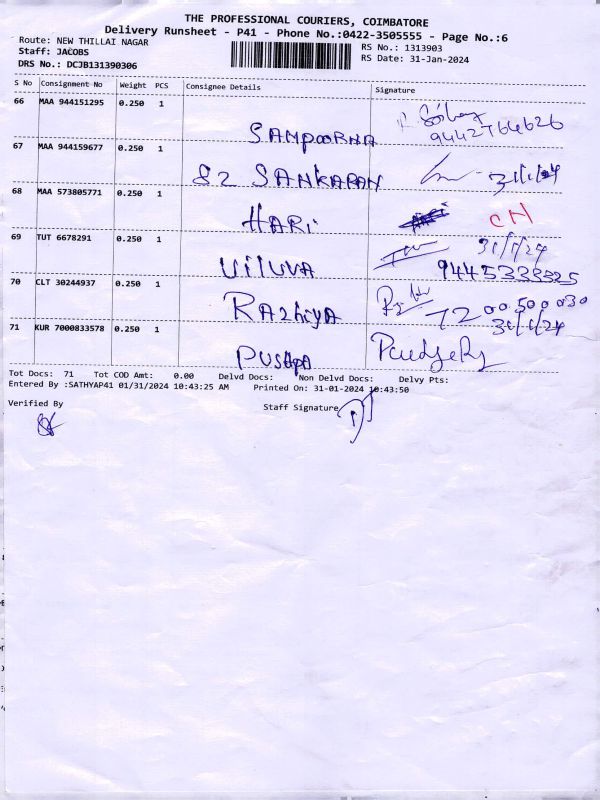 THE PROFESSIONAL COURIERS, COIMBATORE
Delivery Runsheet - P41 - Phone No.:0422-3505555 - Page No.:6
Route: NEW THILLAI NAGAR
RS No.: 1313903
Staff: JACOBS
RS Date: 31-Jan-2024
DRS No.: DCJB131390306
S No Consignment No Weight PCS Consignee Details Signature
66 MAA 944151295 0.250 1
SAMpooRNA 9442764626
67 MAA 944159677 0.250 1
S2 SANKARAN 31/1/24
68 MAA 573805771 0.250 1
HARi CN
69 TUT 6678291 0.250 1 31/1/24
ViLUVA 9445333525
70 CLT 30244937 0.250 1
RAzhiyA 7200500030
31/1/24
71 KUR 7000833578 0.250 1
PUSHpA
Tot Docs: 71 Tot COD Amt: 0.00 Delvd Docs: Non Delvd Docs: Delvy Pts:
Entered By :SATHYAP41 01/31/2024 10:43:25 AM Printed On: 31-01-2024 10:43:50
Verified By Staff Signature